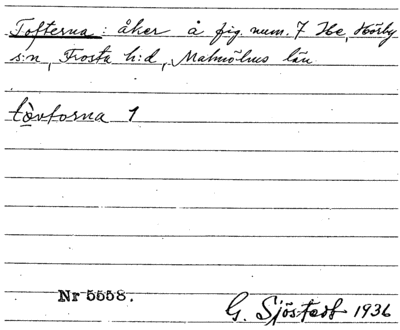 Tofterna: åker å fig. num. 7 Hörby
s:n, Frosta h:d, Malmöhus län
tòvtorna 1
Nr 5558.
G. Sjöstedt 1936